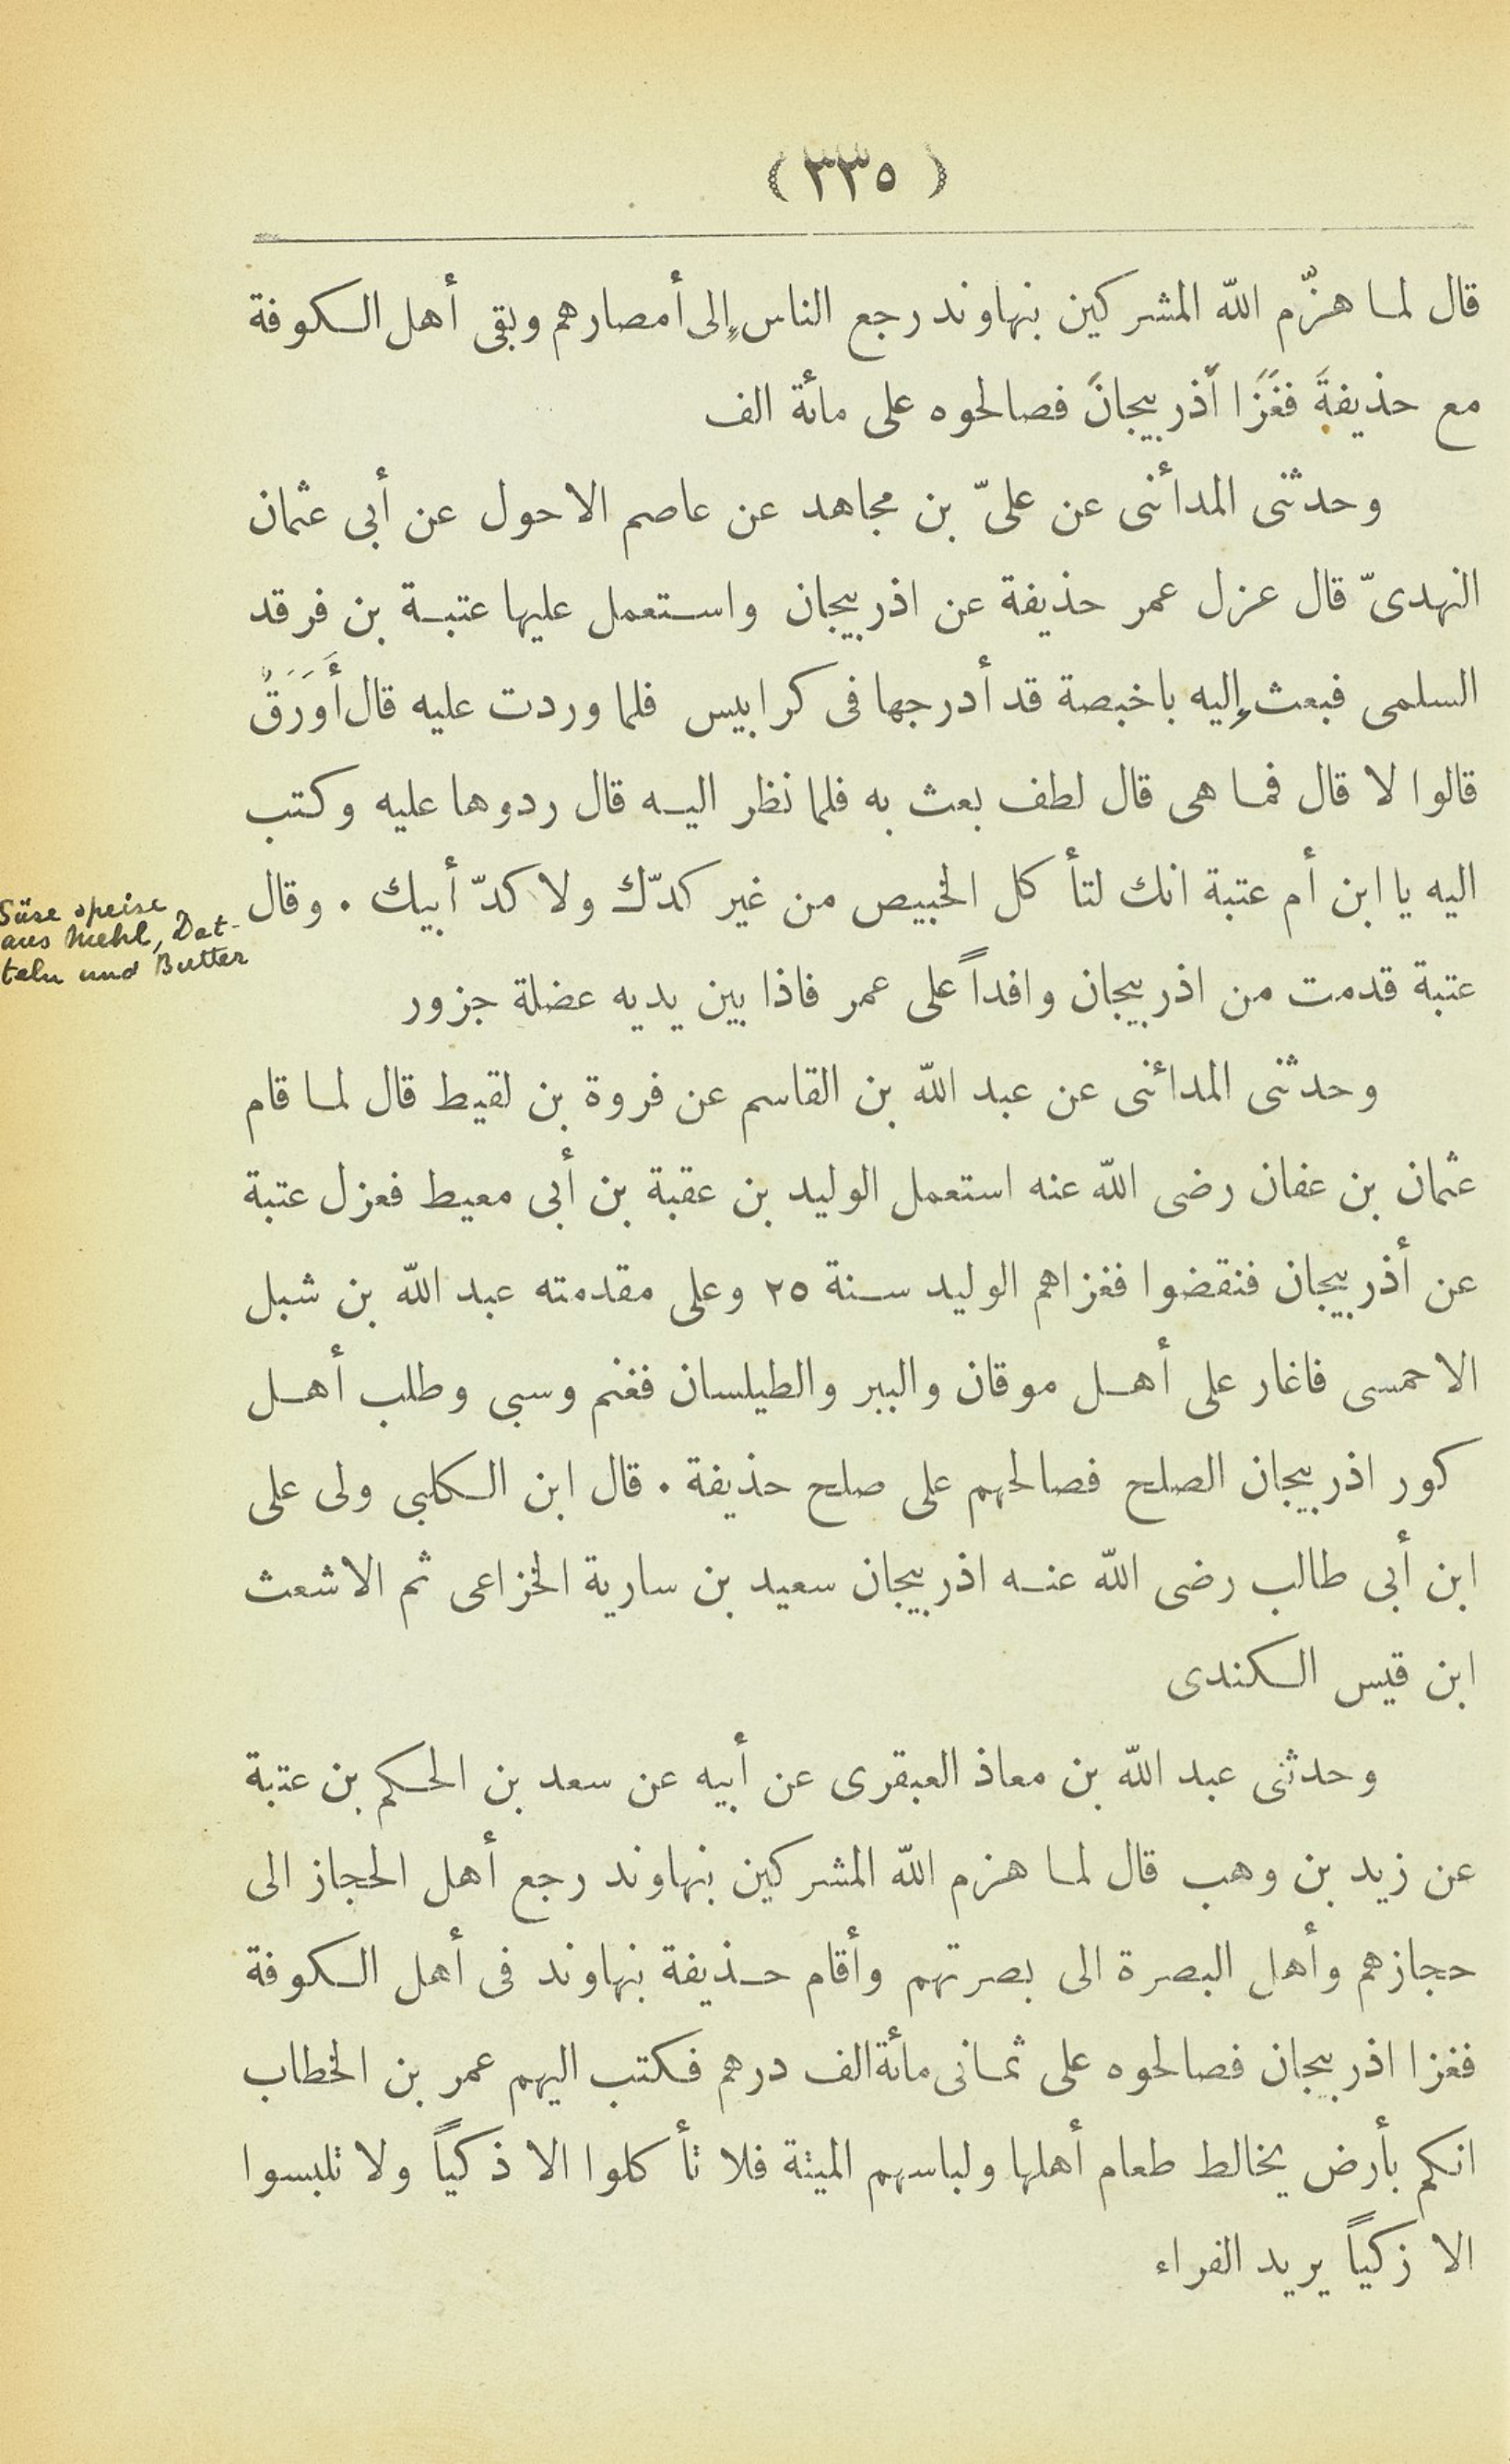 (٣٣٥)
قال لما هزّم الله المشركين بنهاوند رجع الناس إلى أمصارهم وبقى أهل الكوفة
مع حذيفةَ فغَزَا أَذربيجانَ فصالحوه على مائة الف
وحدثنى المدائنى عن علىّ بن مجاهد عن عاصم الاحول عن أبى عثمان
النهدىّ قال عزل عمر حذيفة عن اذربيجان واستعمل عليها عتبة بن فرقد
السلمى فبعث إليه باخبصة قد أدرجها فى كرابيس فلما وردت عليه قال أَوَرَقٌ
قالوا لا قال فما هى قال لطف بعث به فلما نظر اليه قال ردوها عليه وكتب
اليه يا ابن أم عتبة انك لتأكل الخبيص من غير كدّك ولا كدّ أبيك . وقال
Süse speise
aus Mehl, Dat-
teln und Butter
عتبة قدمت من اذربيجان وافداً على عمر فاذا بين يديه عضلة جزور
وحدثنى المدائنى عن عبد الله بن القاسم عن فروة بن لقيط قال لما قام
عثمان بن عفان رضى الله عنه استعمل الوليد بن عقبة بن أبى معيط فعزل عتبة
عن أذربيجان فنقضوا فغزاهم الوليد سنة ٢٥ وعلى مقدمته عبد الله بن شبل
الاحمسى فاغار على أهل موقان والببر والطيلسان فغنم وسبى وطلب أهل
كور اذربيجان الصلح فصالحهم على صلح حذيفة . قال ابن الكلبى ولى على
ابن أبى طالب رضى الله عنه اذربيجان سعيد بن سارية الخزاعى ثم الاشعث
ابن قيس الكندى
وحدثنى عبد الله بن معاذ العبقرى عن أبيه عن سعد بن الحكم بن عتبة
عن زيد بن وهب قال لما هزم الله المشركين بنهاوند رجع أهل الحجاز الى
حجازهم وأهل البصرة الى بصرتهم وأقام حذيفة بنهاوند فى أهل الكوفة
فغزا اذربيجان فصالحوه على ثمانى مائة الف درهم فكتب اليهم عمر بن الخطاب
انكم بأرض يخالط طعام أهلها ولباسهم الميتة فلا تأكلوا الا ذكياً ولا تلبسوا
الا زكياً يريد الفراء